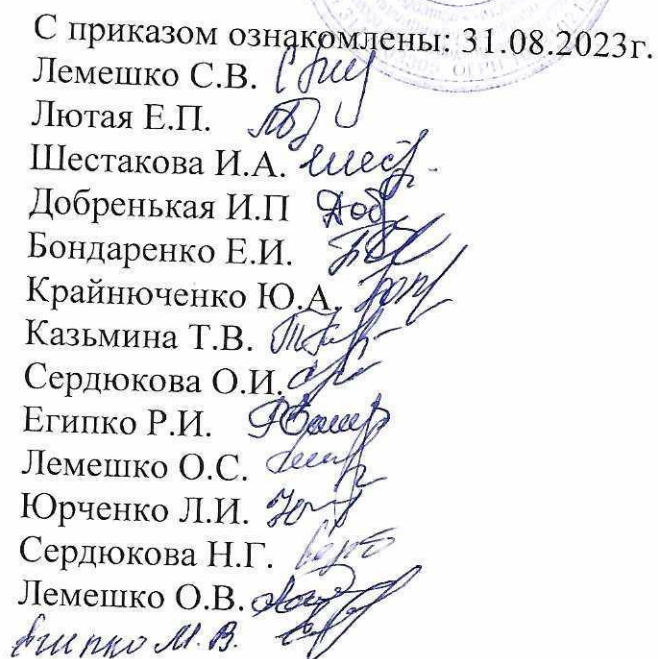 С приказом ознакомлены: 31.08.2023г.
Лемешко С.В.
Лютая Е.П.
Шестакова И.А.
Добренькая И.П
Бондаренко Е.И.
Крайнюченко Ю.А.
Казьмина Т.В.
Сердюкова О.И.
Египко Р.И.
Лемешко О.С.
Юрченко Л.И.
Сердюкова Н.Г.
Лемешко О.В.
Египко М.В.